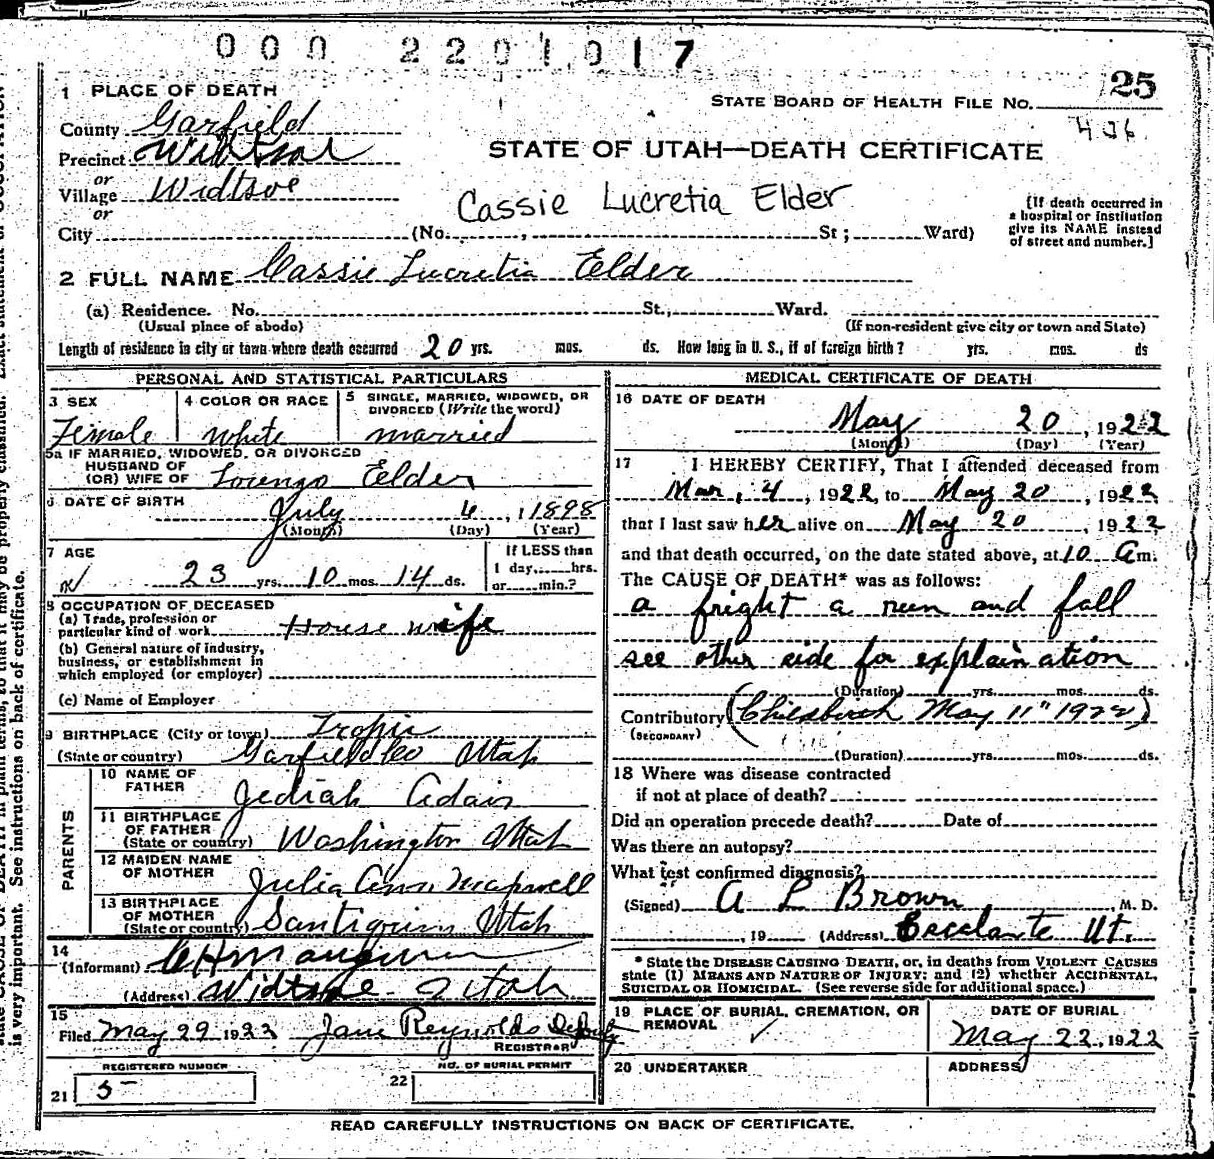 000 2201017
25
STATE BOARD OF HEALTH FILE NO.
406
1 PLACE OF DEATH
County Garfield
STATE OF UTAH—DEATH CERTIFICATE
Precinct Widtsoe
or
Village Widtsoe
or
Cassie Lucretia Elder
[If death occurred in a hospital or institution give its NAME instead of street and number.]
City (No. , St; Ward)
2 FULL NAME Cassie Lucretia Elder
(a) Residence. No. St., Ward.
(Usual place of abode) (If non-resident give city or town and State)
Length of residence in city or town where death occurred 20 yrs. mos. ds. How long in U. S., if of foreign birth? yrs. mos. ds
PERSONAL AND STATISTICAL PARTICULARS
3 SEX
Female
4 COLOR OR RACE
White
5 SINGLE, MARRIED, WIDOWED, OR DIVORCED (Write the word)
married
5a IF MARRIED, WIDOWED, OR DIVORCED
HUSBAND OF
(OR) WIFE OF Lorengo Elder
6 DATE OF BIRTH
July 6, 1898
(Month) (Day) (Year)
7 AGE
23 yrs. 10 mos. 14 ds.
If LESS than
1 day, hrs.
or min.?
8 OCCUPATION OF DECEASED
(a) Trade, profession or
particular kind of work House wife
(b) General nature of industry,
business, or establishment in
which employed (or employer)
(c) Name of Employer
9 BIRTHPLACE (City or town) Tropic
(State or country) Garfield Co Utah
PARENTS
10 NAME OF FATHER Jediah Adair
11 BIRTHPLACE OF FATHER
(State or country) Washington Utah
12 MAIDEN NAME OF MOTHER Julia Ann Mapwell
13 BIRTHPLACE OF MOTHER
(State or country) Santiquin Utah
14
(Informant)
(Address) Widtsoe Utah
15
Filed May 29 1922 Jane Reynolds Deputy
REGISTRAR
REGISTERED NUMBER
21 5-
NO. OF BURIAL PERMIT
22
MEDICAL CERTIFICATE OF DEATH
16 DATE OF DEATH
May 20, 1922
(Month) (Day) (Year)
17 I HEREBY CERTIFY, That I attended deceased from
Mar, 4, 1922, to May 20, 1922
that I last saw her alive on May 20, 1922
and that death occurred, on the date stated above, at 10 am.
The CAUSE OF DEATH* was as follows:
a fright a run and fall
see other side for explain ation
(Duration) yrs. mos. ds.
Contributory (Childbirth May 11" 1922)
(SECONDARY)
(Duration) yrs. mos. ds.
18 Where was disease contracted
if not at place of death?
Did an operation precede death? Date of
Was there an autopsy?
What test confirmed diagnosis?
(Signed) A L Brown, M. D.
, 19 (Address) Escalante Ut.
* State the DISEASE CAUSING DEATH, or, in deaths from VIOLENT CAUSES
state (1) MEANS AND NATURE OF INJURY; and (2) whether ACCIDENTAL,
SUICIDAL OR HOMICIDAL. (See reverse side for additional space.)
19 PLACE OF BURIAL, CREMATION, OR REMOVAL
DATE OF BURIAL
May 22, 1922
20 UNDERTAKER
ADDRESS
READ CAREFULLY INSTRUCTIONS ON BACK OF CERTIFICATE.
is very important. See instructions on back of certificate.